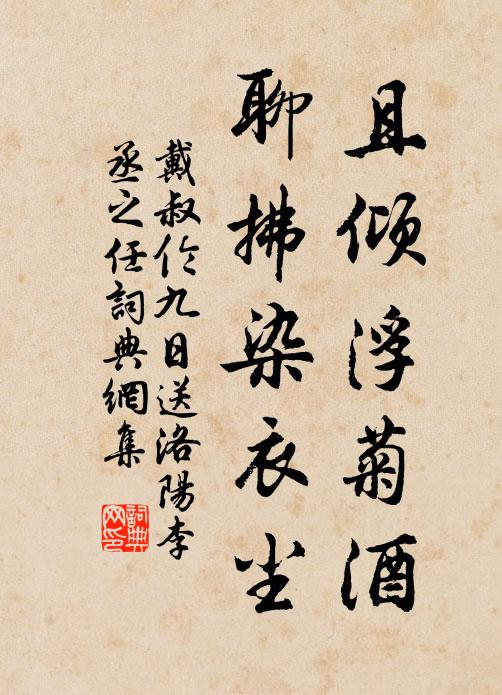 且傾浮菊酒
聊拂染衣尘
戴叔伦九日送洛陽李
丞之任詞典網集
詞典
网印